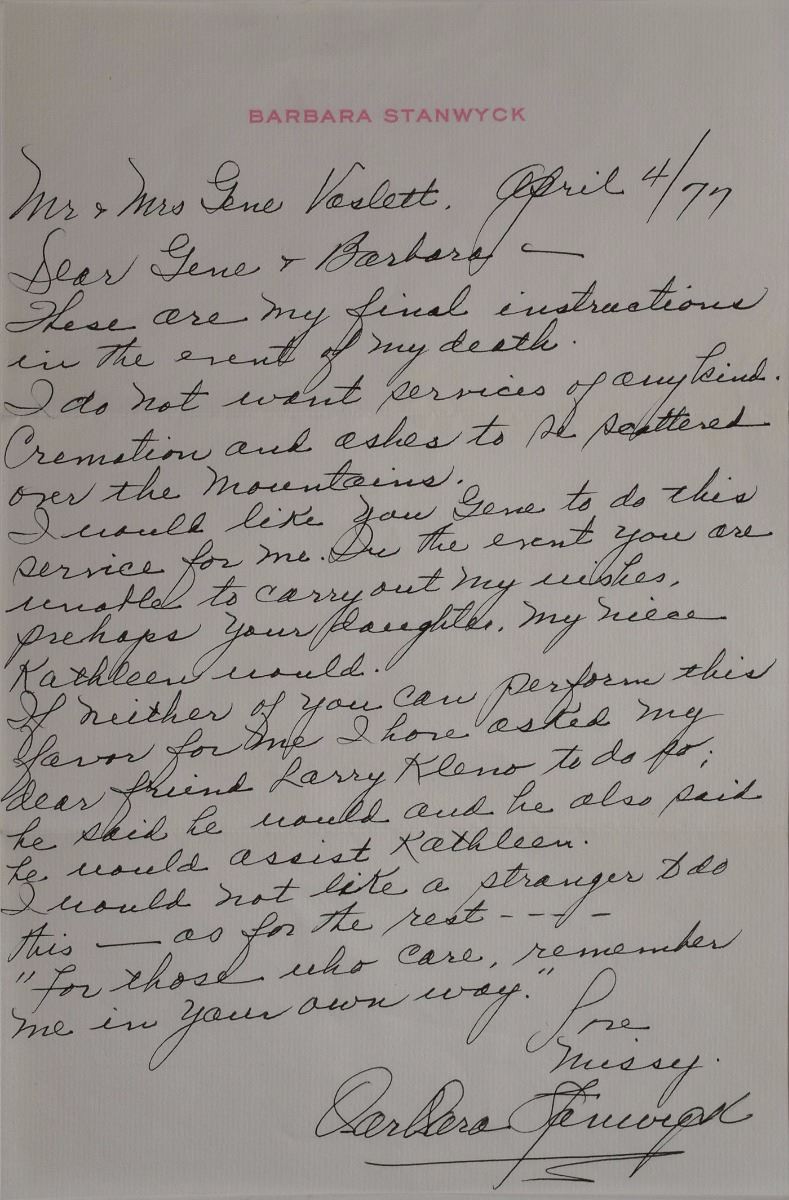 BARBARA STANWYCK
Mr & Mrs Gene Vaslett. April 4/77
Dear Gene & Barbara —
These are my final instructions
in the event of my death.
I do not want services of any kind.
Cremation and ashes to be scattered
over the mountains.
I would like you Gene to do this
service for me. In the event you are
unable to carry out my wishes,
prehaps your daughter, my niece
Kathleen would.
If neither of you can perform this
favor for me I have asked my
dear friend Larry Kleno to do so;
he said he would and he also said
he would assist Kathleen.
I would not like a stranger to do
this — as for the rest - - - -
"For those who care, remember
me in your own way."
Love
Missy.
Barbara Stanwyck